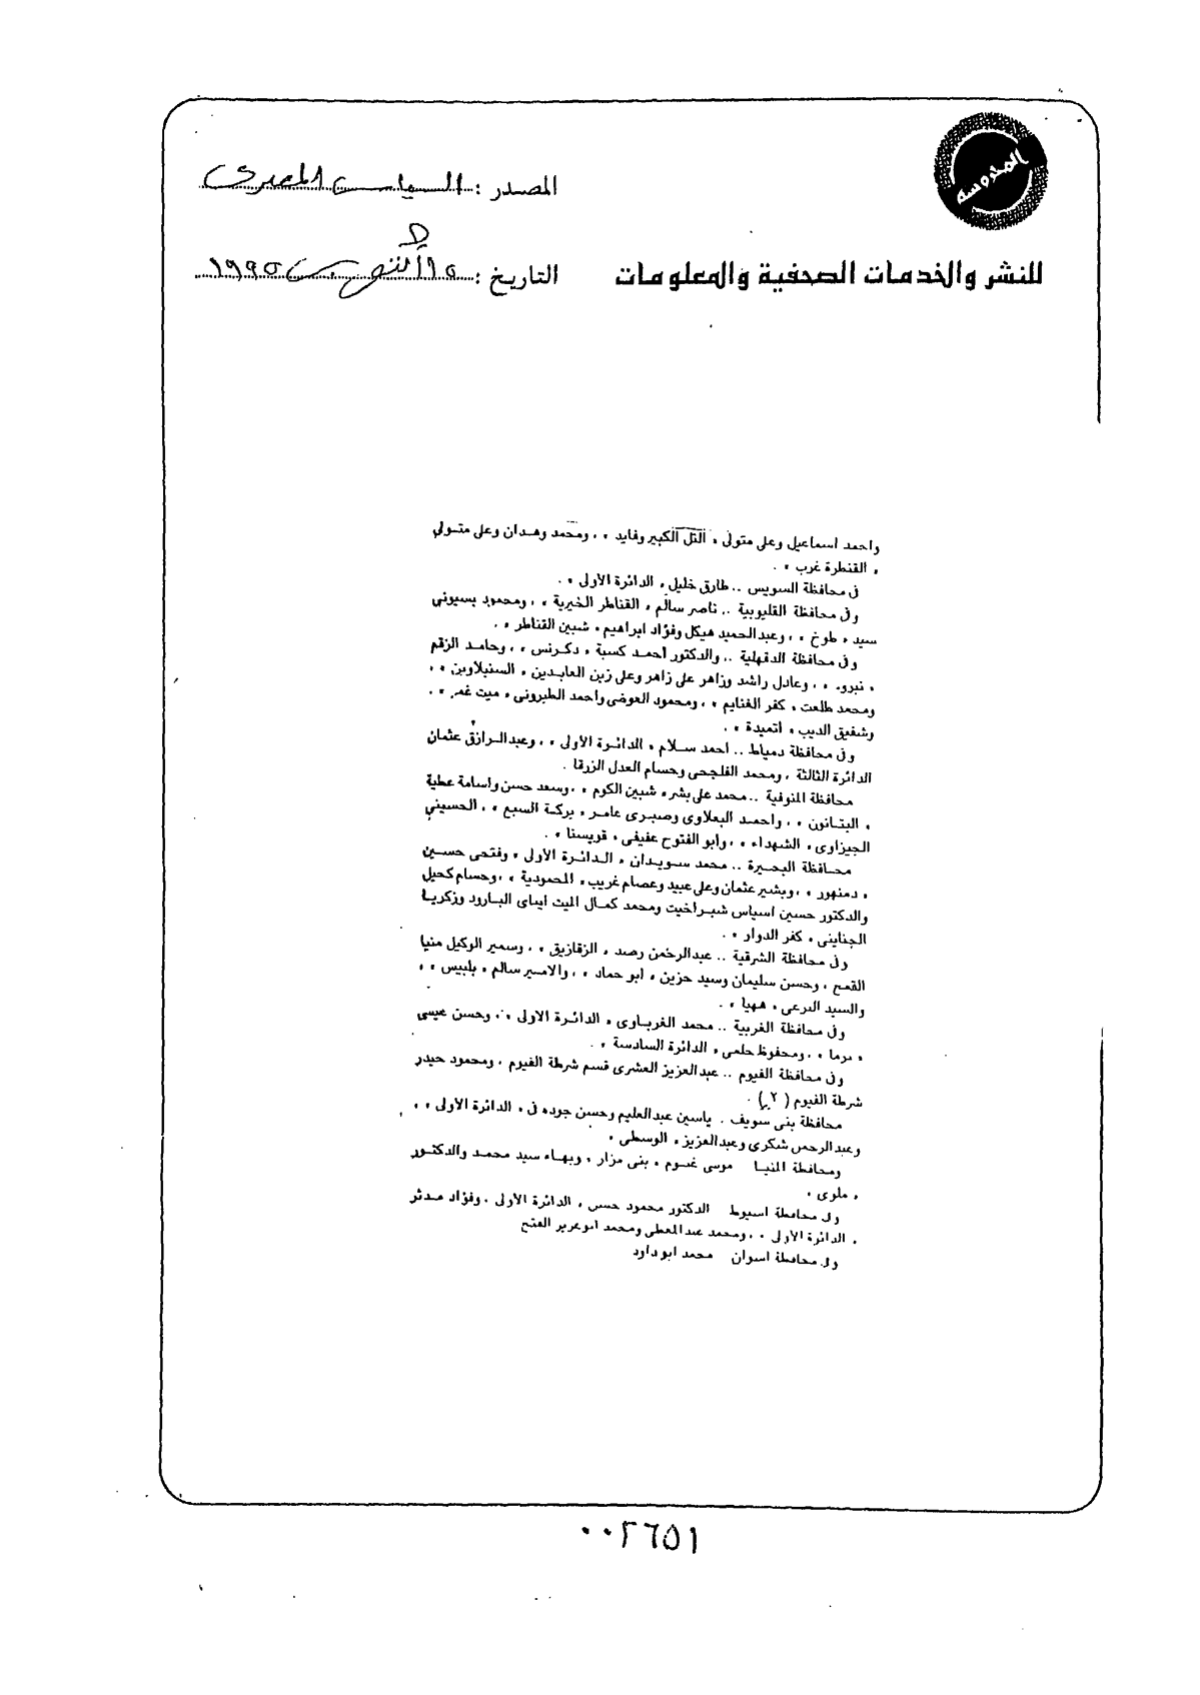 المحروسة
المصدر : السياسى المصرى
للنشر والخدمات الصحفية والمعلومات
التاريخ : ١٥ أكتوبر ١٩٩٥
واحمد اسماعيل وعلى متولى « التل الكبير وفايد » ، ومحمد وهدان وعلى متولي
« القنطرة غرب » .
فى محافظة السويس .. طارق خليل « الدائرة الأولى » .
وفى محافظة القليوبية .. ناصر سالم « القناطر الخيرية » ، ومحمود بسيونى
سيد « طوخ » ، وعبدالحميد هيكل وفؤاد ابراهيم « شبين القناطر » .
وفى محافظة الدقهلية .. والدكتور أحمد كسبة « دكرنس » ، وحامد الزقم
« نبروه » ، وعادل راشد وزاهر على زاهر وعلى زين العابدين « السنبلاوين » ،
ومحمد طلعت « كفر الغنايم » ، ومحمود العوضى واحمد الطبرونى « ميت غمر » .
وشفيق الديب « اتميدة » .
وفى محافظة دمياط .. احمد سلام « الدائرة الأولى » ، وعبدالرازق عثمان
الدائرة الثالثة ، ومحمد الفلجحى وحسام العدل الزرقا .
محافظة المنوفية .. محمد على بشر « شبين الكوم » ، وسعد حسن واسامة عطية
« البتانون » ، واحمد البعلاوى وصبرى عامر « بركة السبع » ، الحسيني
الجيزاوى « الشهداء » ، وابو الفتوح عفيفى « قويسنا » .
محافظة البحيرة .. محمد سويدان « الدائرة الأولى » وفتحى حسين
« دمنهور » ، وبشير عثمان وعلى عبيد وعصام غريب « المحمودية » ، وحسام كحيل
والدكتور حسين اسباس شبراخيت ومحمد كمال الميت ايتاى البارود وزكريا
الجناينى « كفر الدوار » .
وفى محافظة الشرقية .. عبدالرحمن رصد « الزقازيق » ، وسمير الوكيل منيا
القمح ، وحسن سليمان وسيد حزين « ابو حماد » ، والامير سالم « بلبيس » ،
والسيد النرعى « ههيا » .
وفى محافظة الغربية .. محمد الغرباوى « الدائرة الاولى » ، وحسن عيسى
« برما » ، ومحفوظ حلمى « الدائرة السادسة » .
وفى محافظة الفيوم .. عبدالعزيز العشرى قسم شرطة الفيوم ، ومحمود حيدر
شرطة الفيوم ( ٢ ) .
محافظة بنى سويف . ياسين عبدالعليم وحسن جوده فى « الدائرة الأولى » ،
وعبد الرحمن شكرى وعبدالعزيز « الوسطى »
ومحافظة المنيا موسى غنوم « بنى مزار » وبهاء سيد محمد والدكتور
« ملوى »
وفى محافظة اسيوط الدكتور محمود حسن « الدائرة الأولى » وفؤاد مدثر
« الدائرة الأولى » ، ومحمد عبدالمعطى ومحمد ابوعزيز الفتح
وفى محافظة اسوان محمد ابو داود
٠٠٢٦٥١